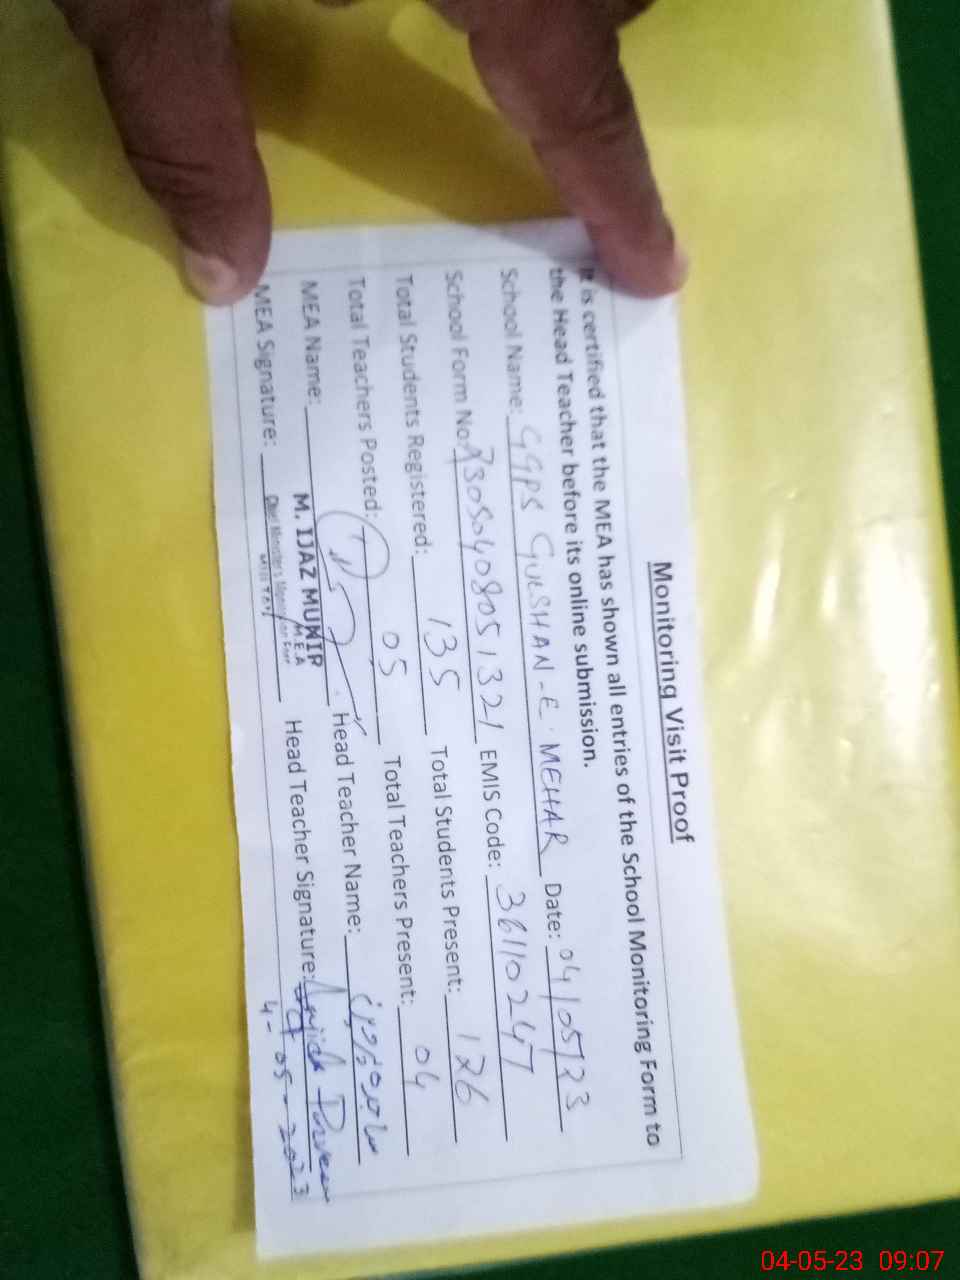 Monitoring Visit Proof
It is certified that the MEA has shown all entries of the School Monitoring Form to
the Head Teacher before its online submission.
School Name: GGPS GULSHAN-E-MEHAR Date: 04/05/23
School Form No: EMIS Code: 36110247
Total Students Registered: 135 Total Students Present: 126
Total Teachers Posted: 05 Total Teachers Present: 04
MEA Name: Head Teacher Name:
M. IJAZ MUNIR
M.E.A
MEA Signature: Head Teacher Signature: Parveen
4-05-2023
04-05-23 09:07